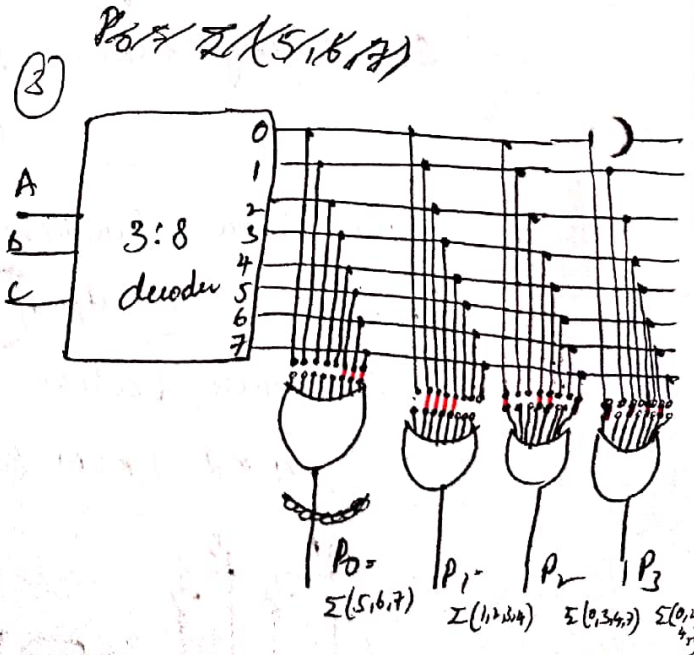 P0 = Σ(5,6,7)
3
A
B
C
3:8
decoder
0
1
2
3
4
5
6
7
P0 =
Σ(5,6,7)
P1 =
Σ(1,2,3,4)
P2
Σ(0,3,4,7)
P3
Σ(0,2
4,